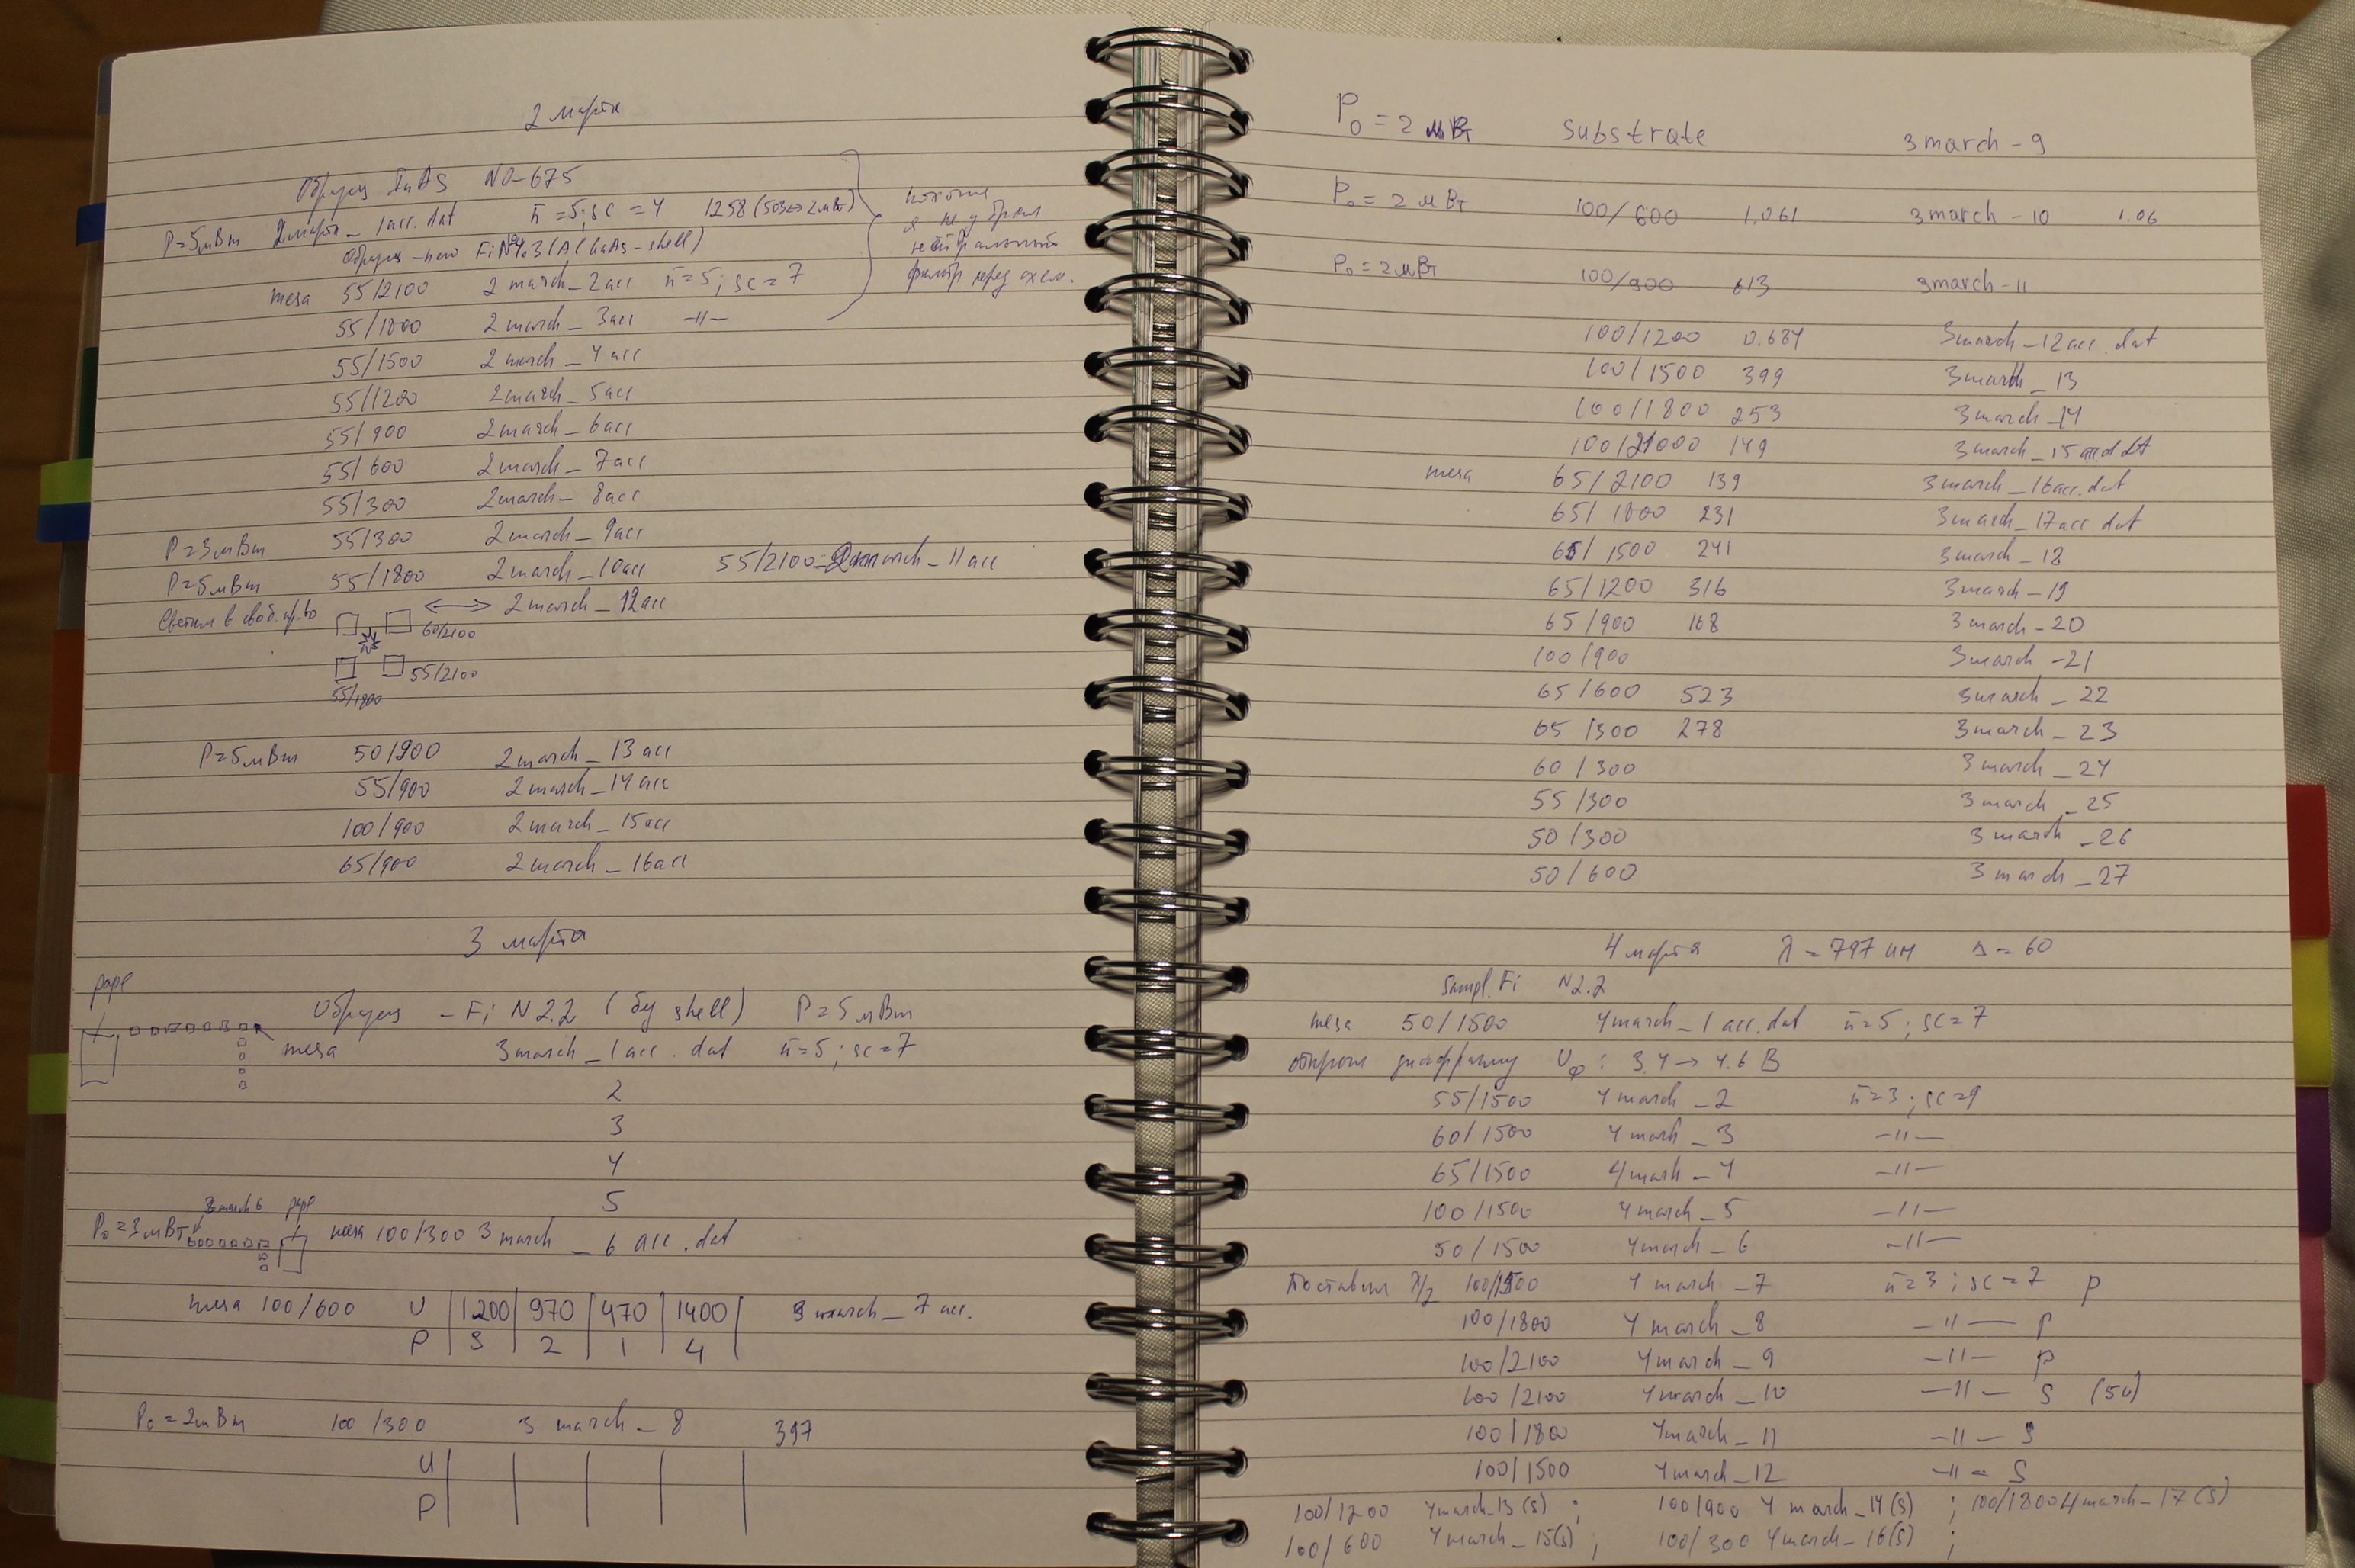 2 марта
Образец InAs NO-675
P=5мВт 2марта_1acc.dat n̄=5; sc=4 1258 (503↔2мВт)
Образец - нано FiN4.3 (AlGaAs-shell)
я не убрал
нейтральный
фильтр перед
mesa 55/2100 2 march_2acc n̄=5; sc=7
55/1800 2 march_3acc -11-
55/1500 2 march_4acc
55/1200 2march_5acc
55/900 2march_6acc
55/600 2march_7acc
55/300 2march_8acc
P=3мВт 55/300 2march_9acc
P=5мВт 55/1800 2march_10acc 55/2100 - 2march_11acc
Светим в своб. пр-во 2 march_12acc
60/2100
55/2100
55/1800
P=5мВт 50/900 2march_13acc
55/900 2march_14acc
100/900 2march_15acc
65/900 2march_16acc
3 марта
Образец - Fi N2.2 (без shell) P=5мВт
mesa 3march_1acc.dat n̄=5; sc=7
2
3
4
5
3march6
P₀=3мВт mesa 100/300 3march_6acc.dat
mesa 100/600 U | 1200 | 970 | 470 | 1400 | 3march_7acc.
P | 3 | 2 | 1 | 4
P₀=2мВт 100/300 3 march_8 397
U
P
P₀=2мВт substrate 3march-9
P₀=2мВт 100/600 1.061 3march-10 1.06
P₀=2мВт 100/900 613 3march-11
100/1200 0.634 3march_12acc.dat
100/1500 399 3march_13
100/1800 253 3march_14
100/2100 149 3march_15acc.dat
mesa 65/2100 139 3march_16acc.dat
65/1800 231 3march_17acc.dat
65/1500 241 3march_18
65/1200 316 3march_19
65/900 168 3march_20
100/900 3march-21
65/600 523 3march_22
65/300 278 3march_23
60/300 3march_24
55/300 3march_25
50/300 3march_26
50/600 3march_27
4 марта λ=797 нм Δ=60
Sampl. Fi N2.2
mesa 50/1500 4march_1acc.dat n̄=5; sc=7
открыл диафрагму Uф: 3.4→4.6 В
55/1500 4march_2 n̄=3; sc=9
60/1500 4marh_3 -11-
65/1500 4marh_4 -11-
100/1500 4march_5 -11-
50/1500 4march_6 -11-
Поставил λ/2 100/1500 4march_7 n̄=3; sc=7 p
100/1800 4march_8 -11- p
100/2100 4march_9 -11- p
100/2100 4march_10 -11- s (50)
100/1800 4march_11 -11- s
100/1500 4march_12 -11- s
100/1200 4march_13(s); 100/900 4march_14(s); 100/1800 4march_17(s)
100/600 4march_15(s); 100/300 4march_16(s);